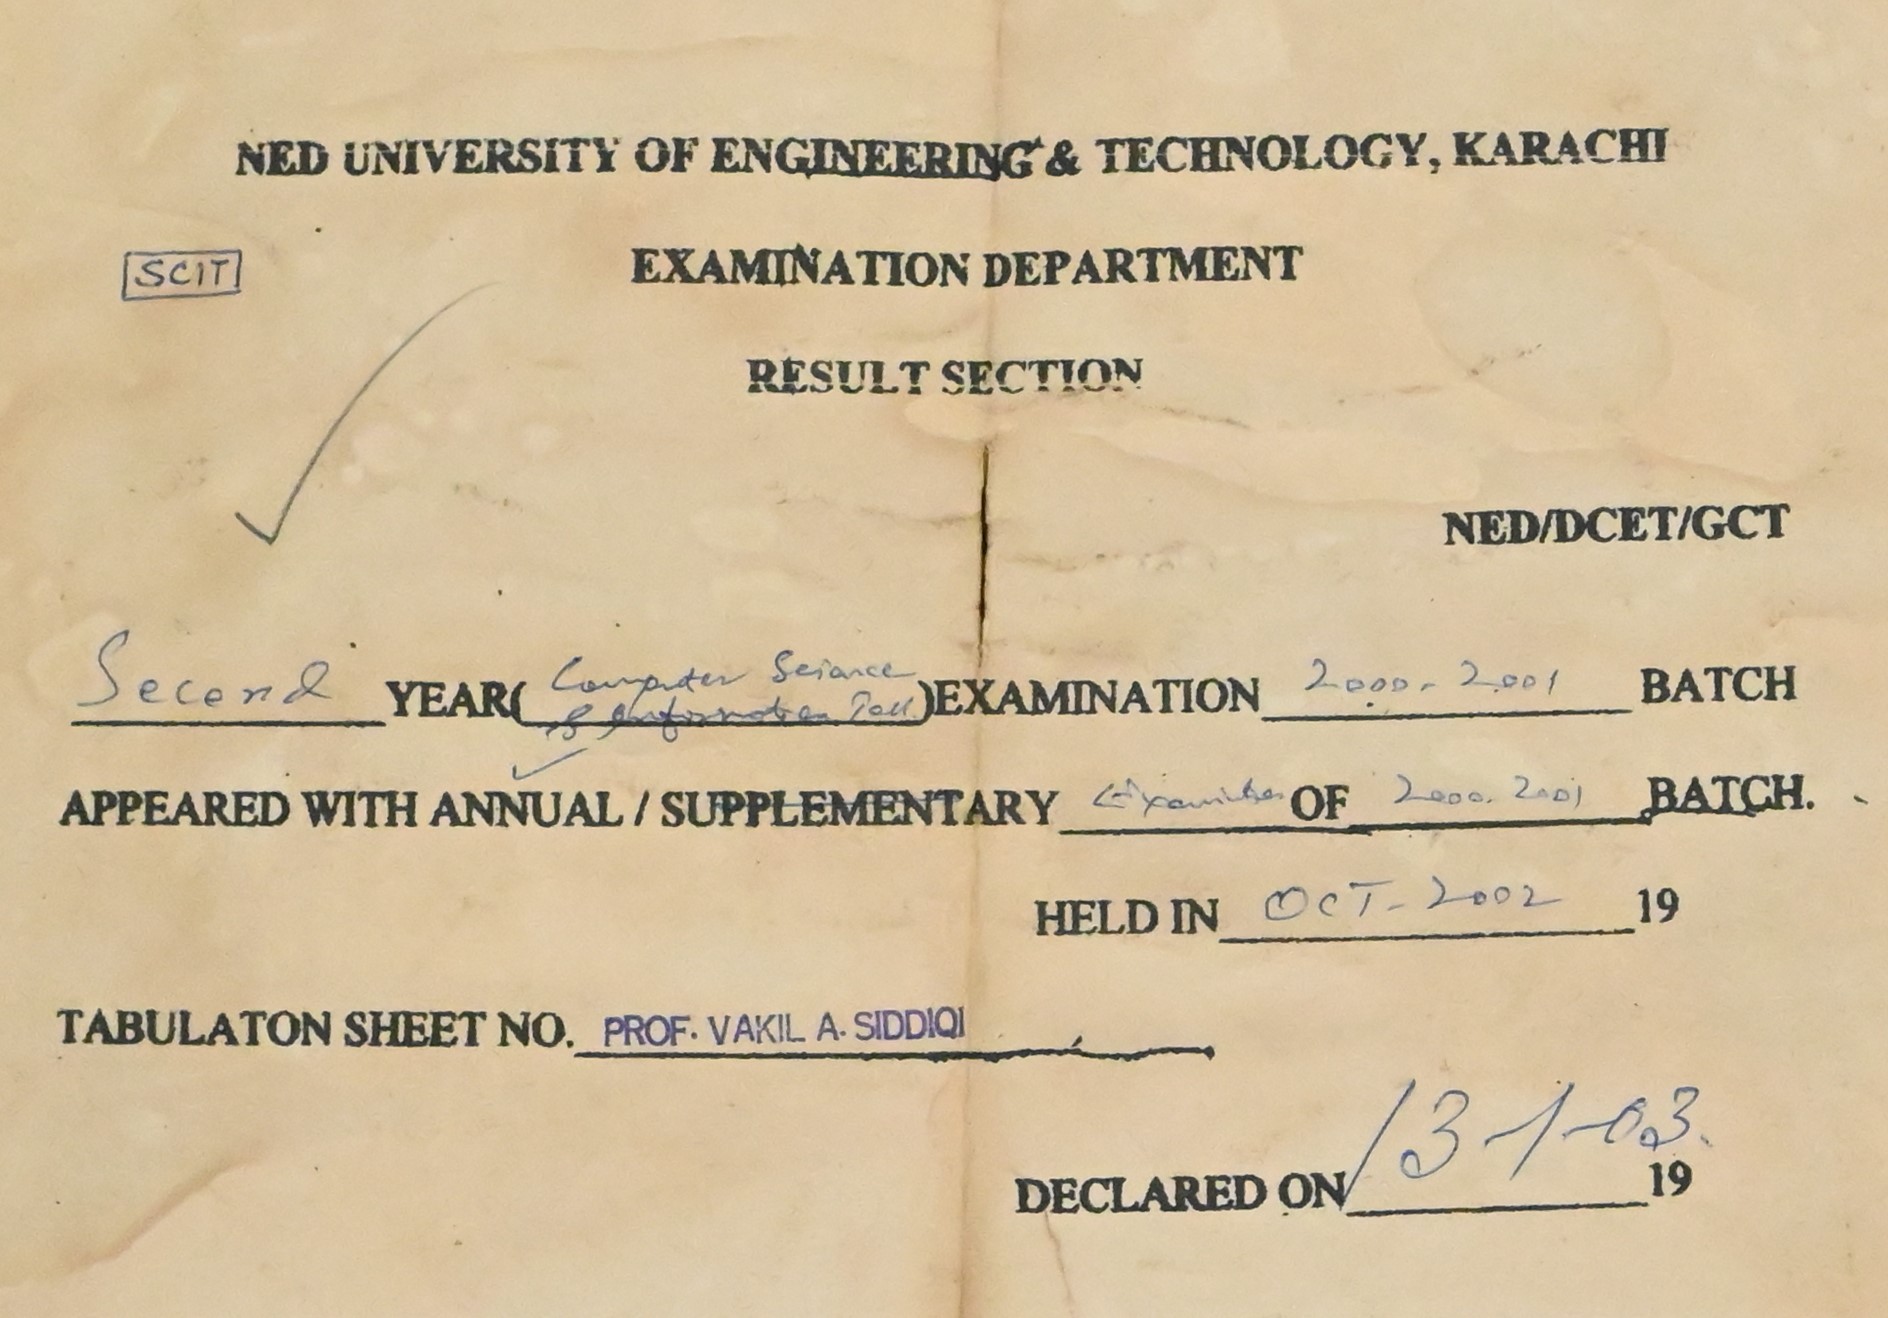 NED UNIVERSITY OF ENGINEERING & TECHNOLOGY, KARACHI
SCIT
EXAMINATION DEPARTMENT
RESULT SECTION
NED/DCET/GCT
Second YEAR( Computer Science & Information Tech )EXAMINATION 2000-2001 BATCH
APPEARED WITH ANNUAL / SUPPLEMENTARY OF 2000-2001 BATCH.
HELD IN OCT-2002 19
TABULATON SHEET NO. PROF. VAKIL A. SIDDIQI
DECLARED ON 13-1-03. 19